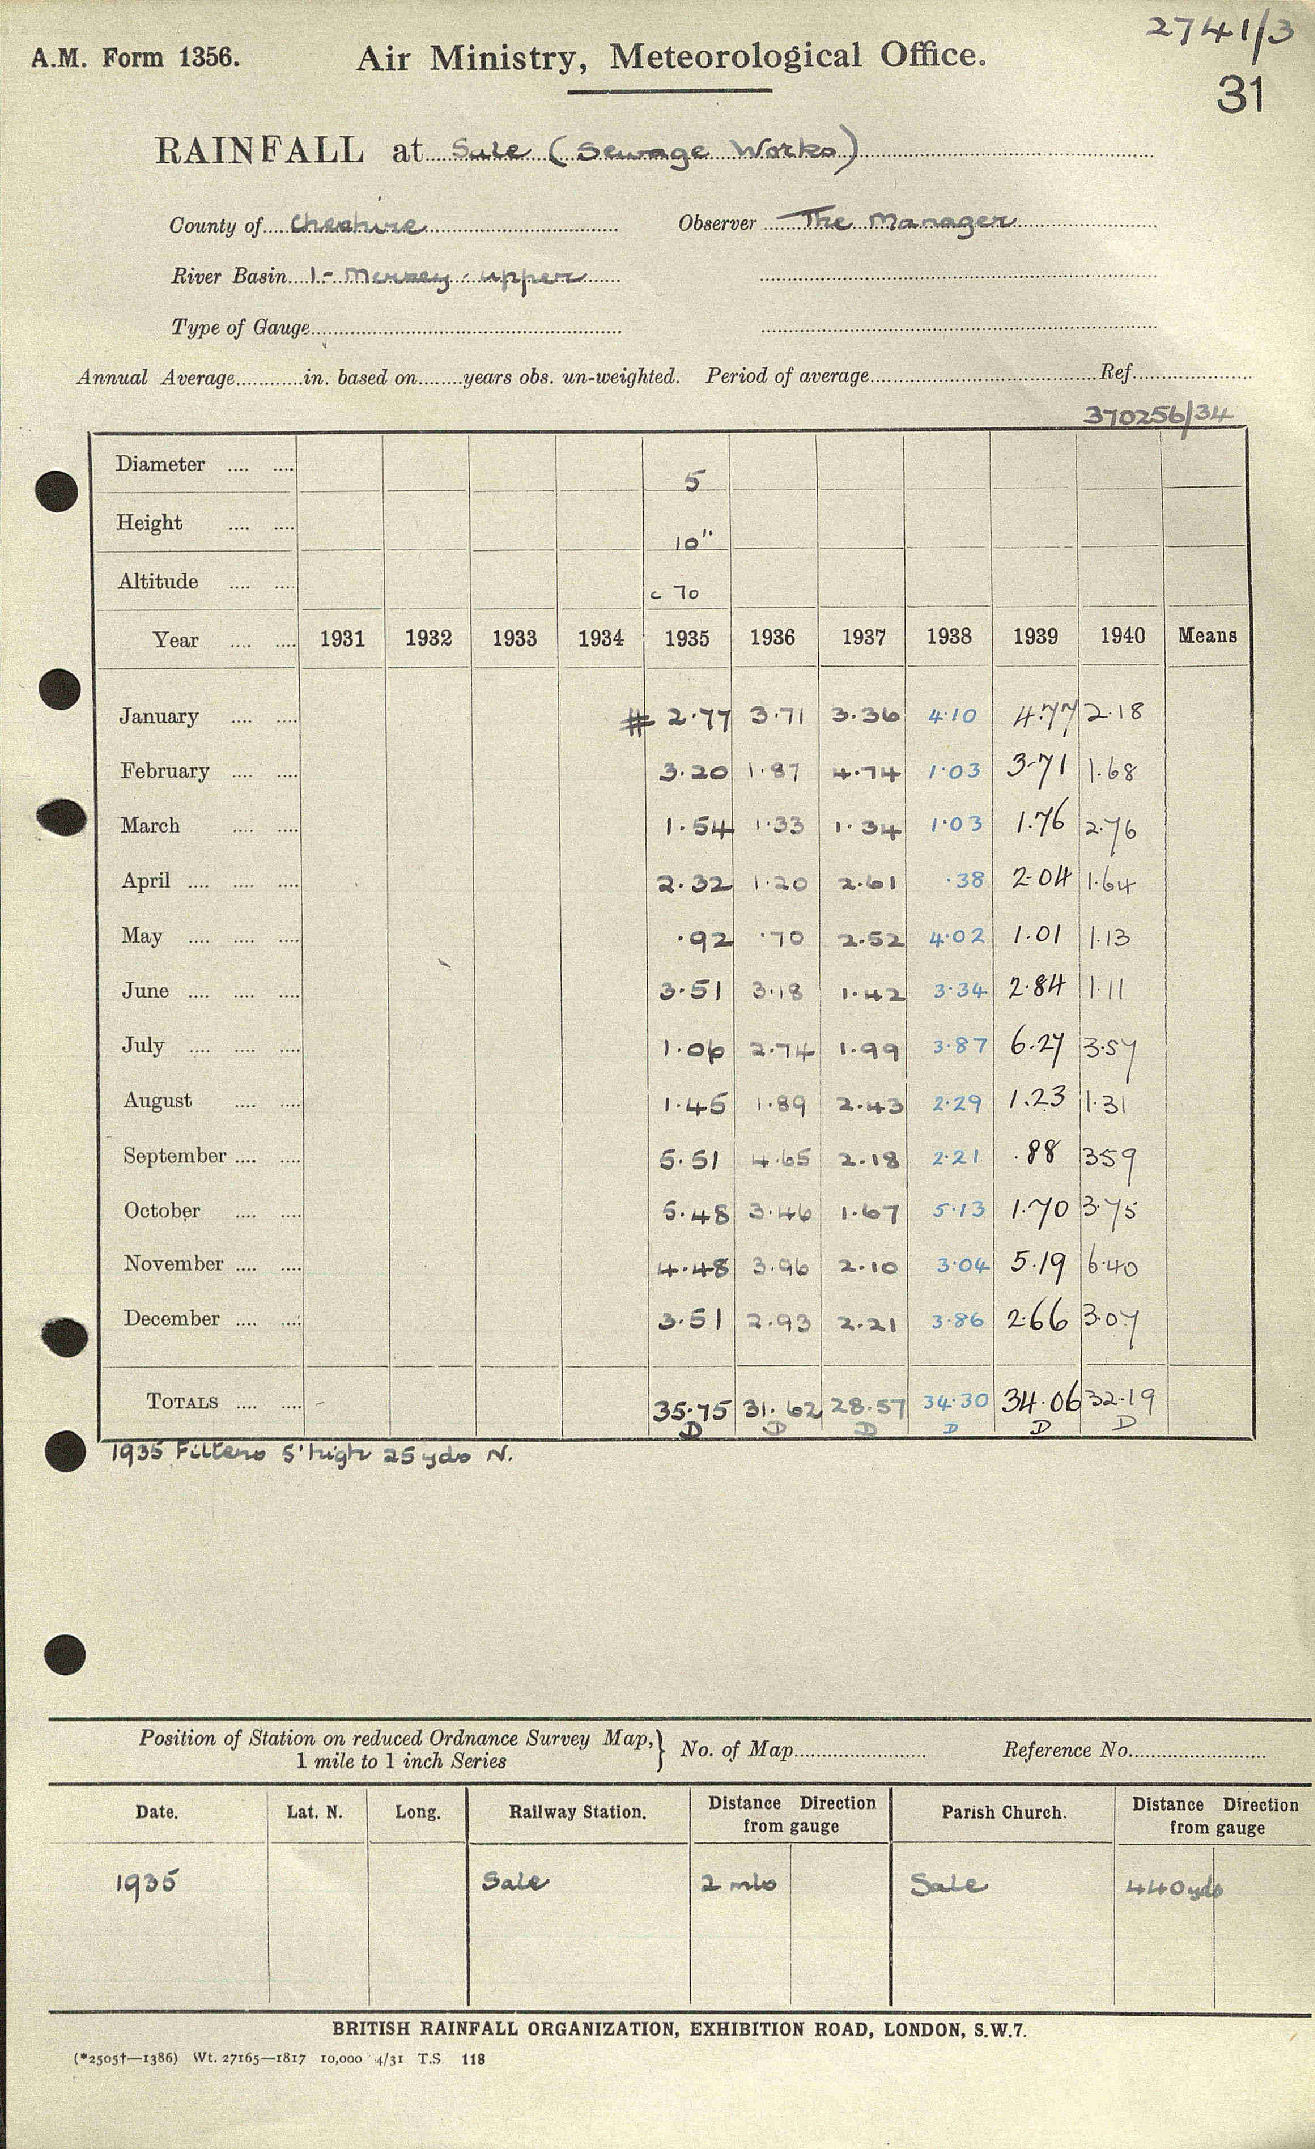 2741/3
A.M. Form 1356. Air Ministry, Meteorological Office.
31
RAINFALL at Sale (Sewage Works)
County of Cheshire Observer The Manager
River Basin 1:- Mersey - upper
Type of Gauge
Annual Average in. based on years obs. un-weighted. Period of average Ref.
370256/34
Diameter 5
Height 10"
Altitude c 70
Year 1931 1932 1933 1934 1935 1936 1937 1938 1939 1940 Means
January # 2.77 3.71 3.36 4.10 4.77 2.18
February 3.20 1.87 4.74 1.03 3.71 1.68
March 1.54 1.33 1.34 1.03 1.76 2.76
April 2.32 1.20 2.61 .38 2.04 1.64
May .92 .70 2.52 4.02 1.01 1.13
June 3.51 3.18 1.42 3.34 2.84 1.11
July 1.06 2.74 1.99 3.87 6.27 3.57
August 1.45 1.89 2.43 2.29 1.23 1.31
September 5.51 4.65 2.18 2.21 .88 359
October 5.48 3.46 1.67 5.13 1.70 3.75
November 4.48 3.96 2.10 3.04 5.19 6.40
December 3.51 2.93 2.21 3.86 2.66 3.07
TOTALS - 35.75 31.62 28.57 34.30 34.06 32.19
D D D D D D
1935 Filters 5' high 25 yds N.
Position of Station on reduced Ordnance Survey Map, } No. of Map Reference No.
1 mile to 1 inch Series
Date. Lat. N. Long. Railway Station. Distance Direction from gauge Parish Church. Distance Direction from gauge
1935 Sale 2 mls Sale 440 yds
BRITISH RAINFALL ORGANIZATION, EXHIBITION ROAD, LONDON, S.W.7.
(*2505†—1386) Wt. 27165—1817 10,000 4/31 T.S. 118